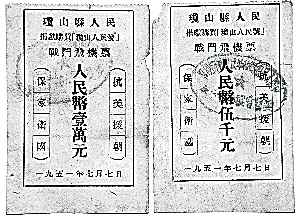 瓊山縣人民
捐獻購買「瓊山人民號」
戰鬥飛機票
人民幣壹萬元
保家衛國
抗美援朝
一九五一年七月七日
瓊山縣人民
捐獻購買「瓊山人民號」
戰鬥飛機票
人民幣伍千元
保家衛國
抗美援朝
一九五一年七月七日